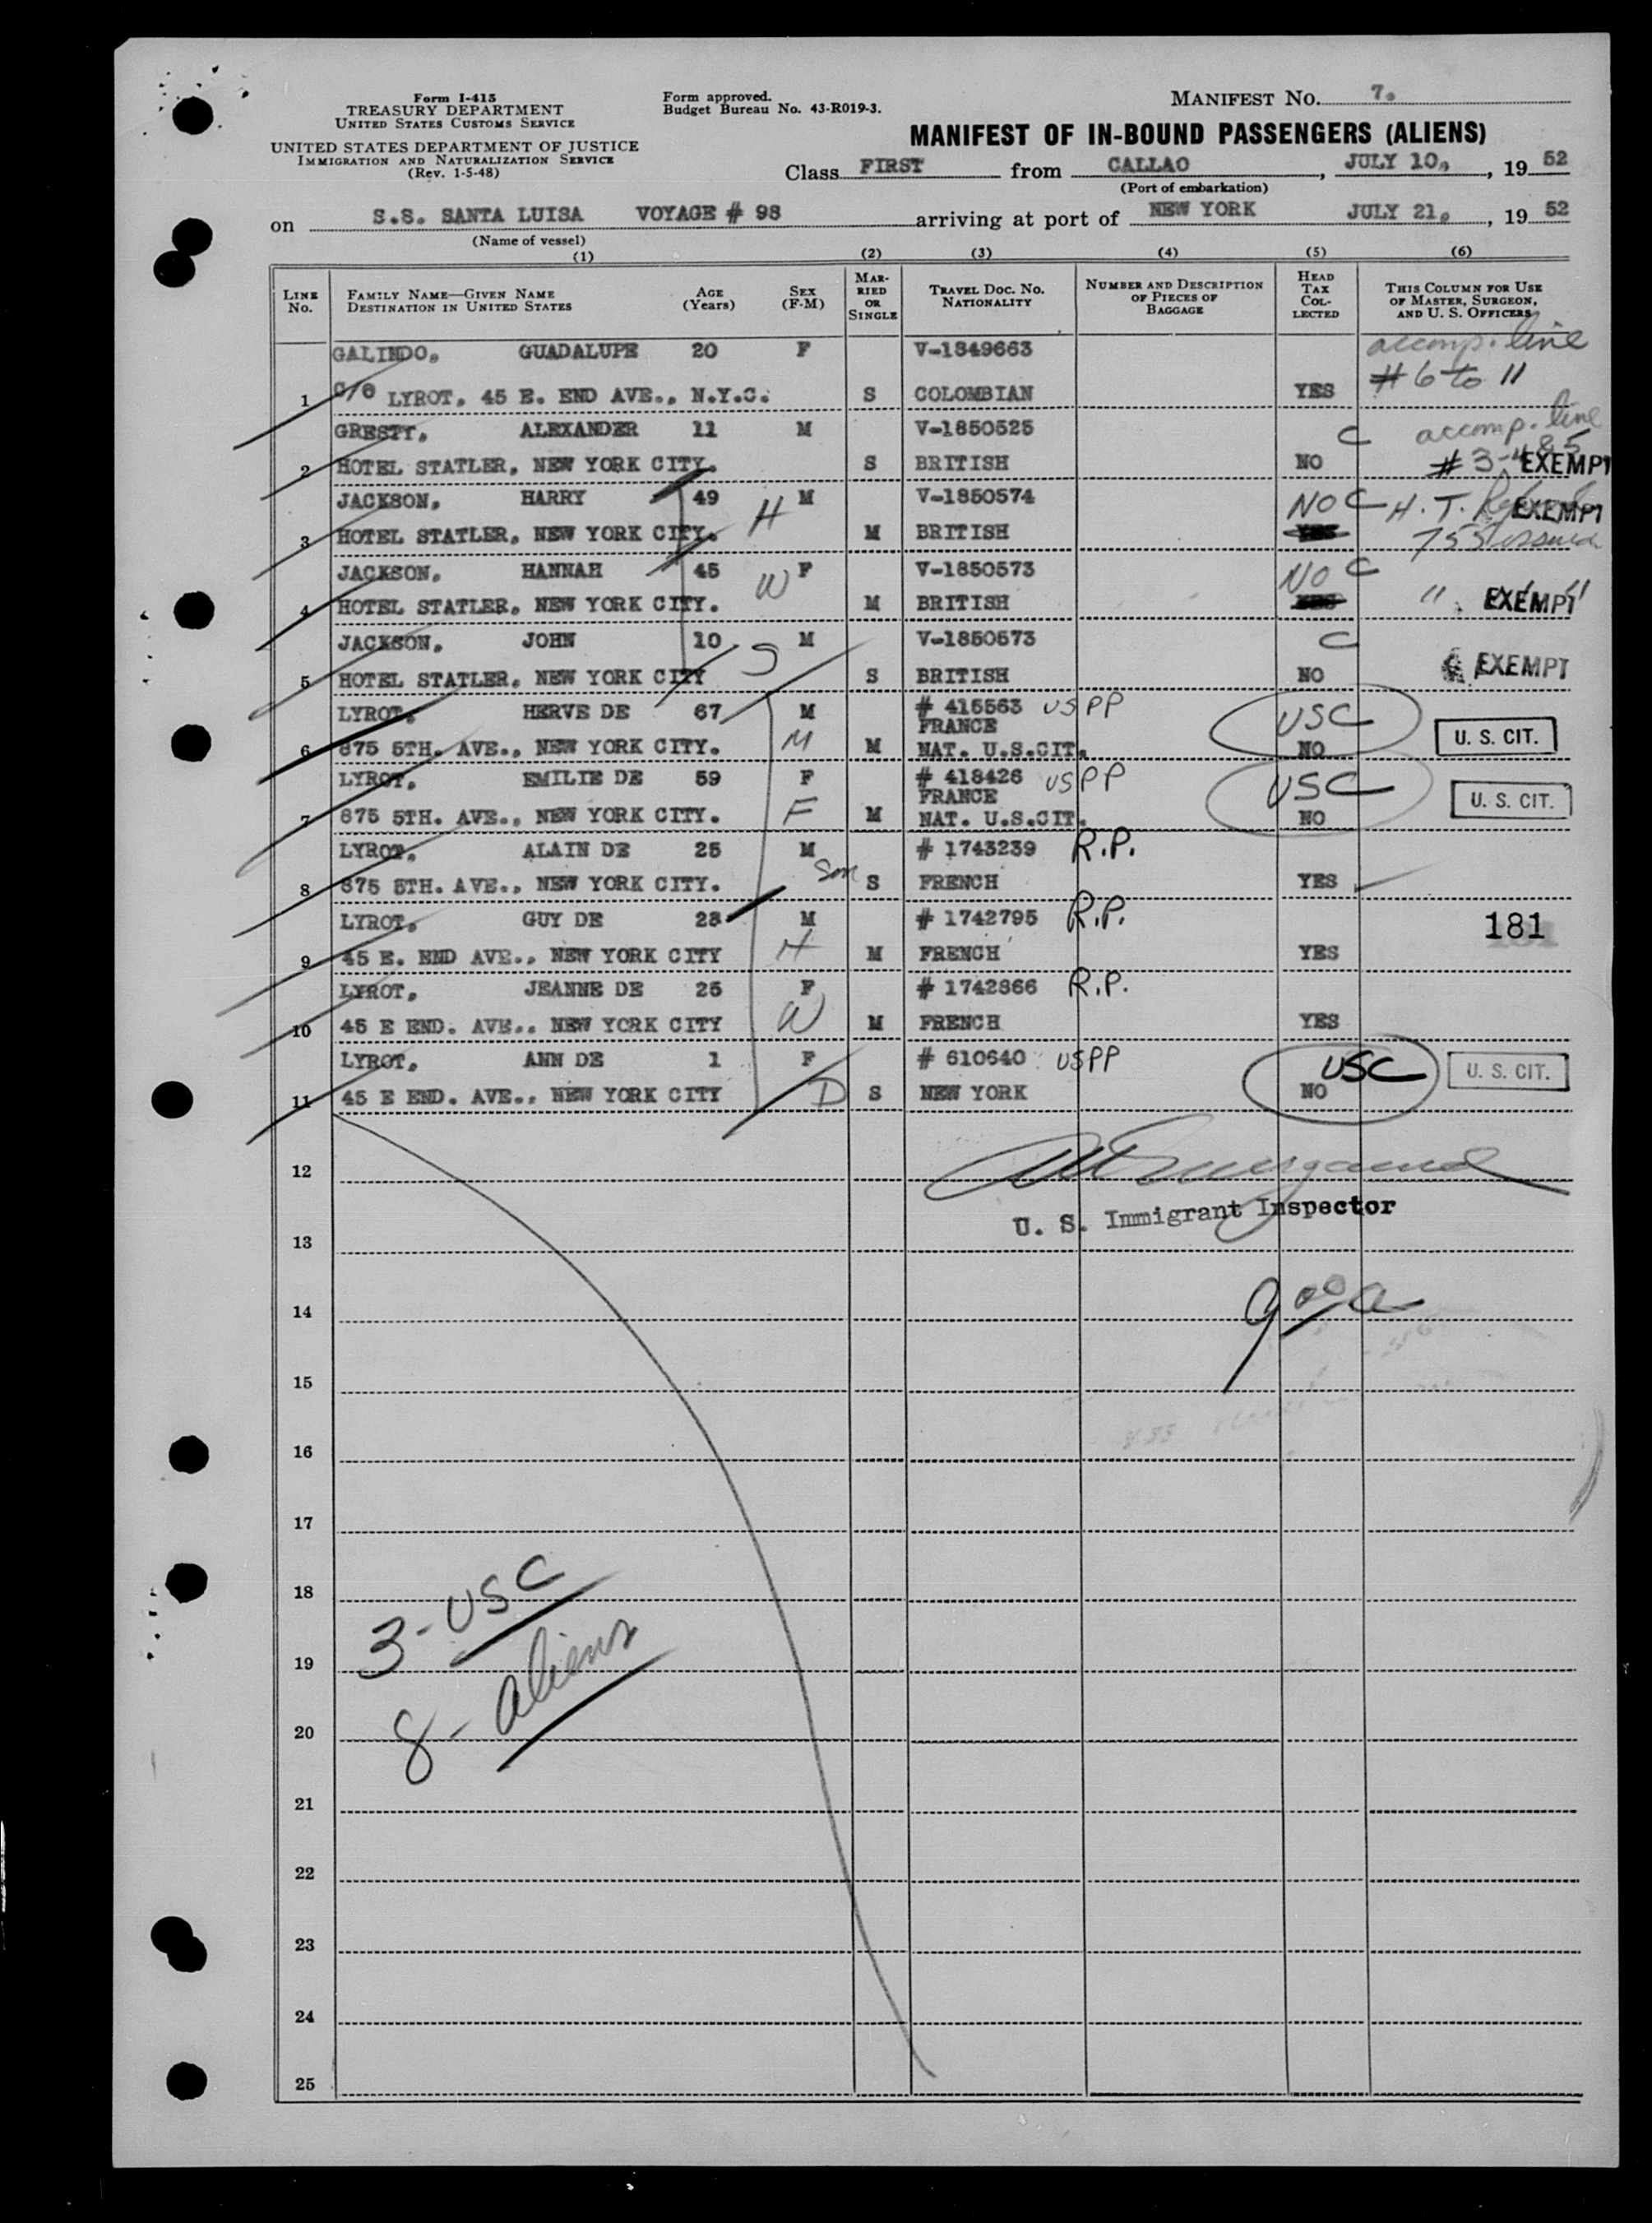 Form I-415
TREASURY DEPARTMENT
UNITED STATES CUSTOMS SERVICE
UNITED STATES DEPARTMENT OF JUSTICE
IMMIGRATION AND NATURALIZATION SERVICE
(Rev. 1-5-48)
Form approved.
Budget Bureau No. 43-R019-3.
MANIFEST NO. 7.
MANIFEST OF IN-BOUND PASSENGERS (ALIENS)
Class FIRST from CALLAO, JULY 10, 19 52
(Port of embarkation)
on S.S. SANTA LUISA VOYAGE # 98 arriving at port of NEW YORK JULY 21, 19 52
(Name of vessel)
(1) (2) (3) (4) (5) (6)
LINE No.
FAMILY NAME—GIVEN NAME
DESTINATION IN UNITED STATES
AGE (Years)
SEX (F-M)
MARRIED OR SINGLE
TRAVEL DOC. NO.
NATIONALITY
NUMBER AND DESCRIPTION OF PIECES OF BAGGAGE
HEAD TAX COLLECTED
THIS COLUMN FOR USE OF MASTER, SURGEON, AND U. S. OFFICERS
GALINDO, GUADALUPE 20 F V-1849663 accomp. line
1 C/O LYROT, 45 E. END AVE., N.Y.C. S COLOMBIAN YES # 6 to 11
GRESTY, ALEXANDER 11 M V-1850525 C accomp. line
2 HOTEL STATLER, NEW YORK CITY. S BRITISH NO # 3-4 & 5 EXEMPT
JACKSON, HARRY 49 H M V-1850574 NO C H. T. EXEMPT
3 HOTEL STATLER, NEW YORK CITY. M BRITISH YES 755 issued
JACKSON, HANNAH 45 W F V-1850573 NO C
4 HOTEL STATLER, NEW YORK CITY. M BRITISH YES " EXEMPT "
JACKSON, JOHN 10 S M V-1850573 C
5 HOTEL STATLER, NEW YORK CITY S BRITISH NO EXEMPT
LYROT, HERVE DE 67 M # 415563 USPP USC
FRANCE
6 875 5TH. AVE., NEW YORK CITY. M M NAT. U.S.CIT. NO U. S. CIT.
LYROT, EMILIE DE 59 F # 418426 USPP USC
FRANCE
7 875 5TH. AVE., NEW YORK CITY. F M NAT. U.S.CIT. NO U. S. CIT.
LYROT, ALAIN DE 25 M # 1743239 R.P.
8 875 5TH. AVE., NEW YORK CITY. Son S FRENCH YES
LYROT, GUY DE 28 M # 1742795 R.P. 181
9 45 E. END AVE., NEW YORK CITY H M FRENCH YES
LYROT, JEANNE DE 25 F # 1742866 R.P.
10 45 E END. AVE., NEW YORK CITY W M FRENCH YES
LYROT, ANN DE 1 F # 610640 USPP USC
11 45 E END. AVE., NEW YORK CITY D S NEW YORK NO U. S. CIT.
12
U. S. Immigrant Inspector
13
14
15
16
17
18
3 - USC
19
8 - aliens
20
21
22
23
24
25